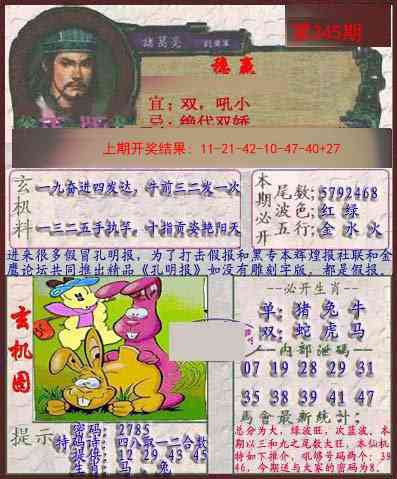 第345期
諸葛亮
穩贏
宜:双,吼小
忌:绝代双娇
上期开奖结果:11-21-42-10-47-40+27
玄机料
一九奋进四发达,牛前三二发一次
一三二五手执竿,十指贡姿艳阳天
本期必开
尾数:5792468
波色:红 绿
五行:金 水 火
进来很多假冒孔明报,为了打击假报和黑专本辉煌报社联和金
鹰论坛共同推出精品《孔明报》如没有雕刻字版,都是假报。
玄机图
--必开生肖--
单:猪兔牛
双:蛇虎马
内部泄码
07 19 28 29 31
35 38 39 41 47
馬會最新統計:
总分为大,绿波旺,次蓝波。本
期以三和九之尾数大旺,本仙机
特如下推介,吼够号码两个:39
46,今期送与大家的密码为8.
提示
密码:2785
特码诗:四八取一二合数
提供:12 29 43 45
生肖:马、兔